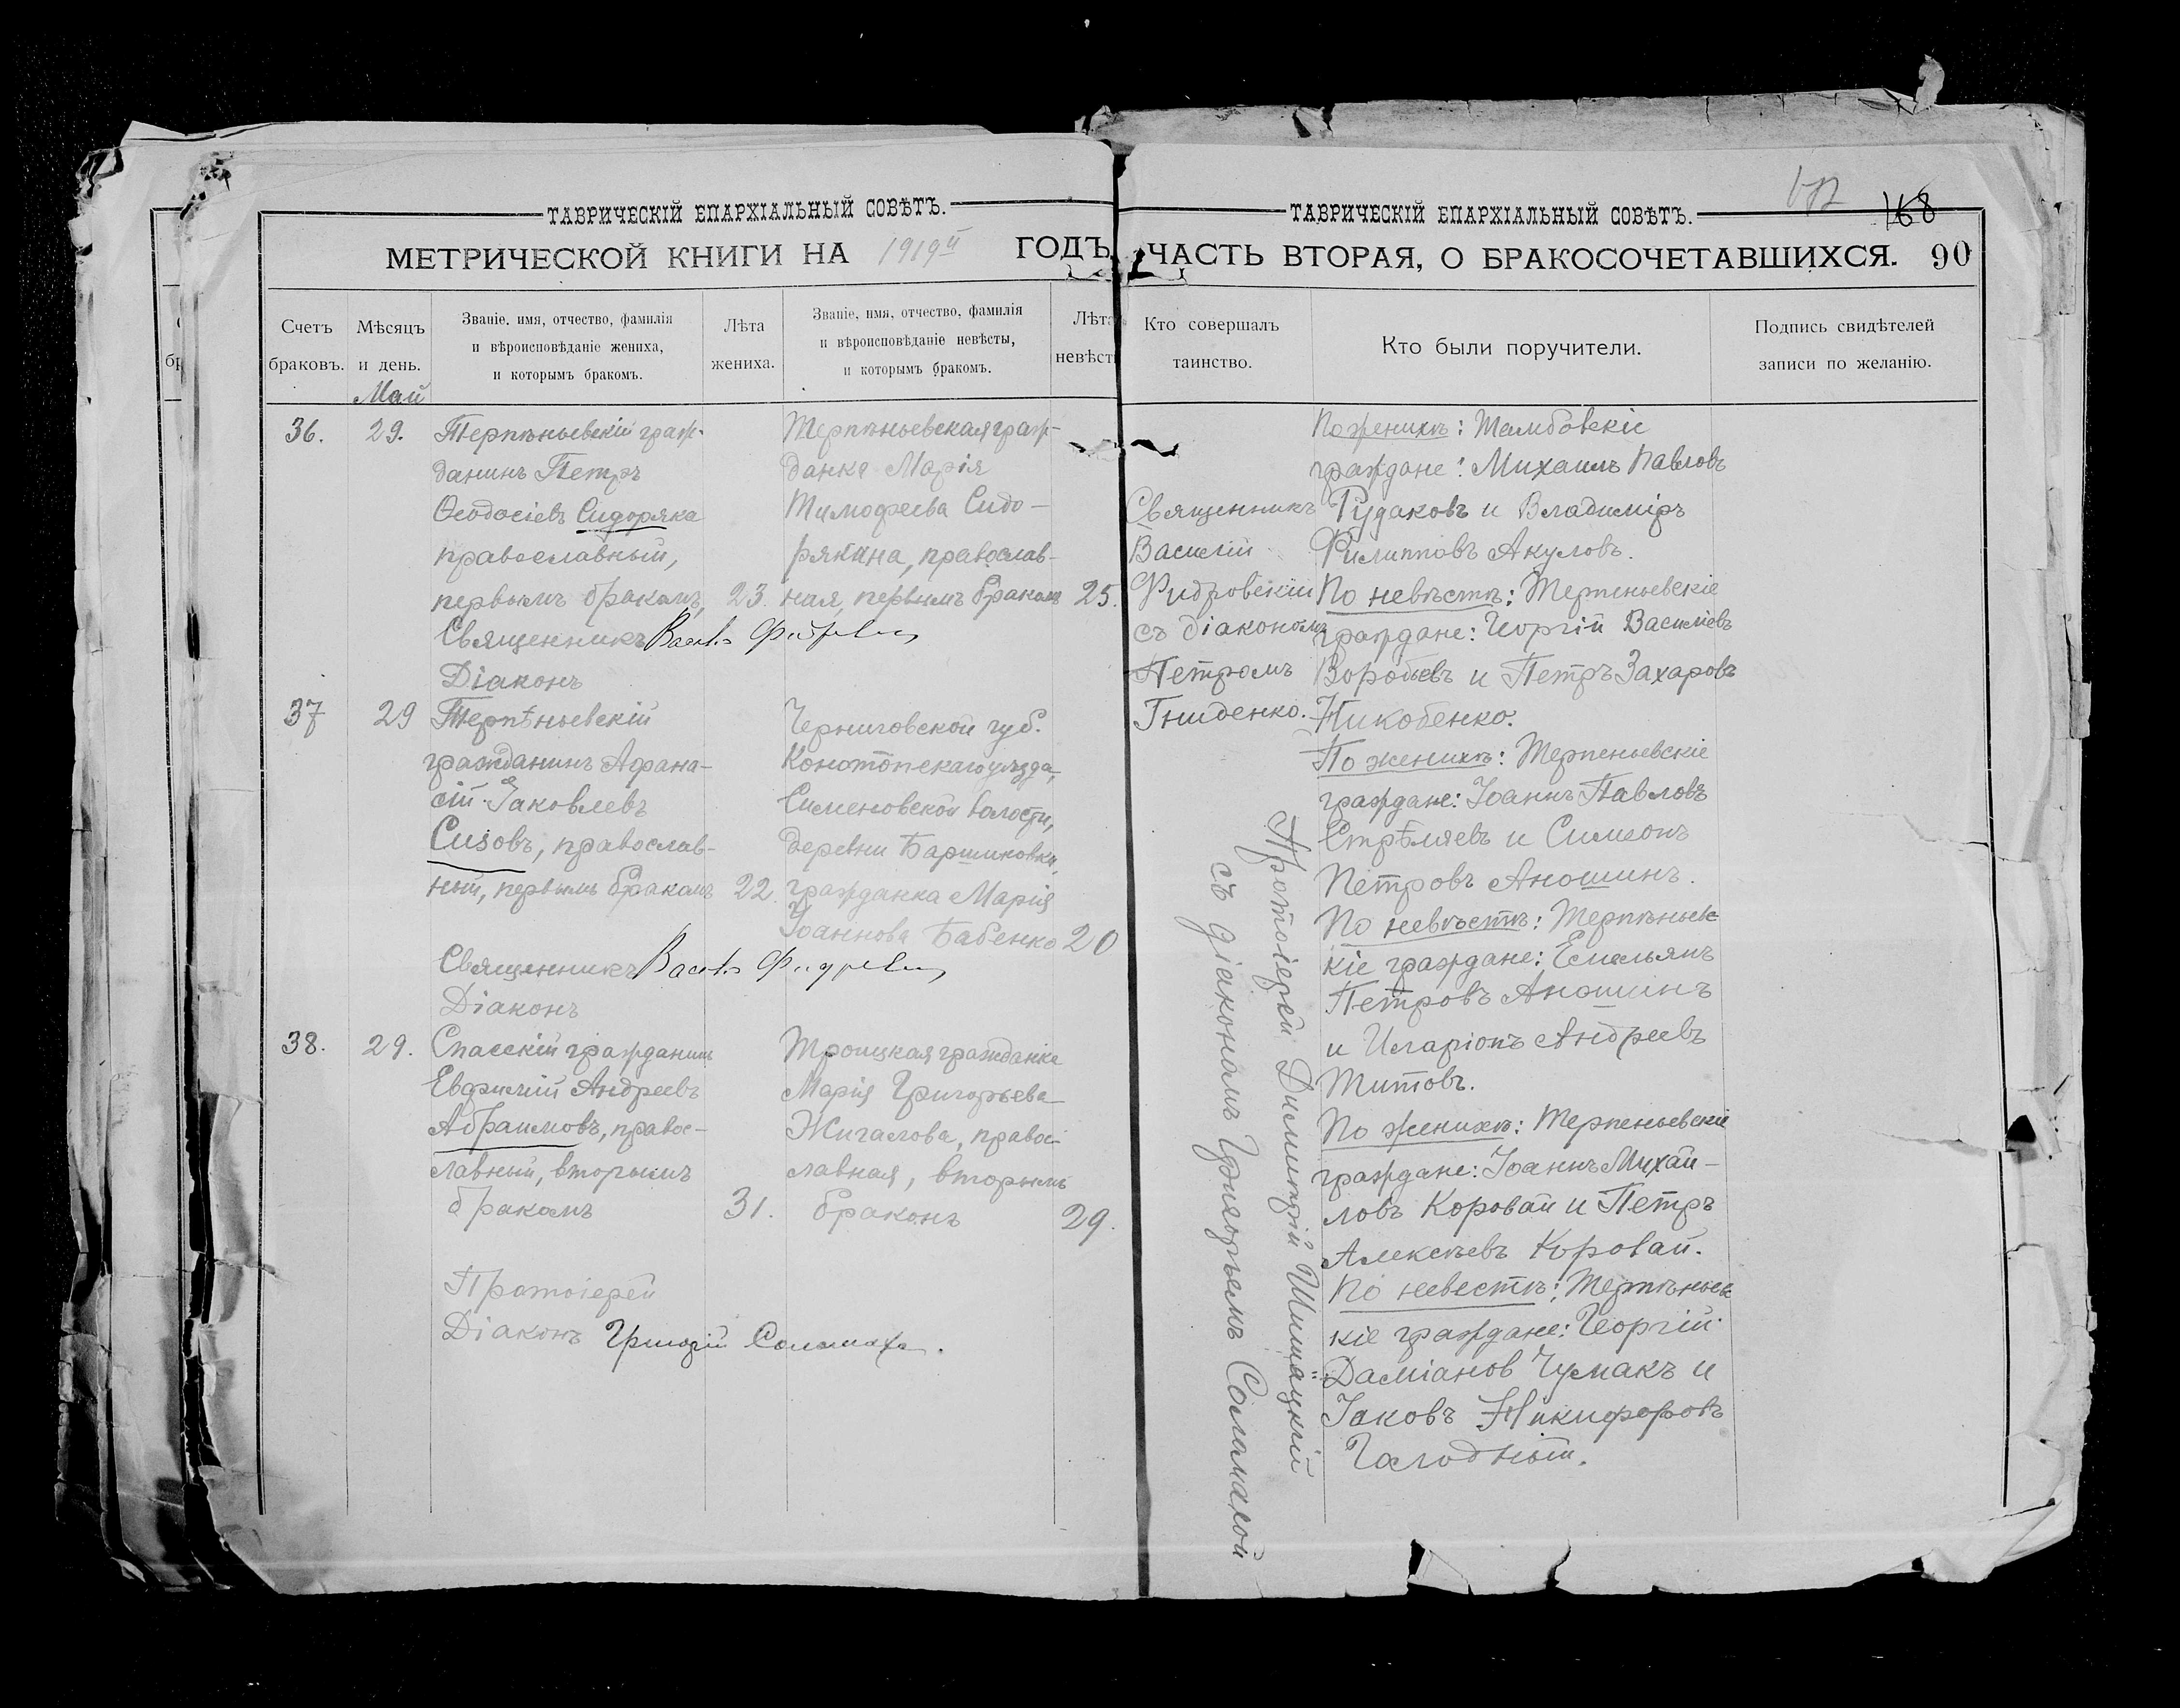 ТАВРИЧЕСКІЙ ЕПАРХІАЛЬНЫЙ СОВѢТЪ.
МЕТРИЧЕСКОЙ КНИГИ НА 1919й ГОДЪ,
Счетъ браковъ.
Мѣсяцъ и день.
Званіе, имя, отчество, фамилія
и вѣроисповѣданіе жениха,
и которымъ бракомъ.
Лѣта жениха.
Званіе, имя, отчество, фамилія
и вѣроисповѣданіе невѣсты,
и которымъ бракомъ.
Лѣта невѣст
Май
36.
29.
Терпѣньевскій граж-
данинъ Петръ
Ѳеодосіевъ Сидоряка
православный,
первымъ бракомъ,
23.
Терпѣньевская граж-
данка Марія
Тимофеева Сидо-
рякина, православ-
ная, первымъ бракомъ
25.
Священникъ
Діаконъ
37
29
Терпѣньевскій
гражданинъ Афана-
сій Іаковлевъ
Сизовъ, православ-
ный, первымъ бракомъ
22.
Черниговской губ.
Конотопскаго уѣзда,
Сименовской волости,
деревни
гражданка Марія
Іоаннова Бабенко
20
Священникъ
Діаконъ
38.
29.
Спасскій гражданинъ
Евфимій Андреевъ
Абраимовъ, правос-
лавный, вторымъ
бракомъ
31.
Троицкая гражданка
Марія Григорьева
Жигалова, правос-
лавная, вторымъ
бракомъ
29.
Протоіерей
Діаконъ Григорій Соламаха.
ТАВРИЧЕСКІЙ ЕПАРХІАЛЬНЫЙ СОВѢТЪ.
168
ЧАСТЬ ВТОРАЯ, О БРАКОСОЧЕТАВШИХСЯ. 90
Кто совершалъ таинство.
Кто были поручители.
Подпись свидѣтелей записи по желанію.
Священникъ
Василій
Фидровскій
съ діакономъ
Петромъ
Гниденко.
По женихѣ: Тамбовскіе
граждане: Михаилъ Павловъ
Рудаковъ и Владиміръ
Филипповъ Акуловъ.
По невѣстѣ: Терпеньевскіе
граждане: Георгій Василіевъ
Воробьевъ и Петръ Захаровъ
По женихѣ: Терпеньевскіе
граждане: Іоаннъ Павловъ
Стрѣляевъ и Симеонъ
Петровъ Аношинъ.
По невѣстѣ: Терпѣньевс-
кіе граждане: Емельянъ
Петровъ Аношинъ
и Иларіонъ Андреевъ
Титовъ.
По женихѣ: Терпеньевскіе
граждане: Іоаннъ Михай-
ловъ Коровай и Петръ
Алексѣевъ Коровай.
По невестѣ: Терпѣньевс
кіе граждане: Георгій
Даміановъ Чумакъ и
Іаковъ Никифоровъ
Голодный.
Протоіерей Димитрій Шишацкій
съ діакономъ Григорьемъ Соламахой